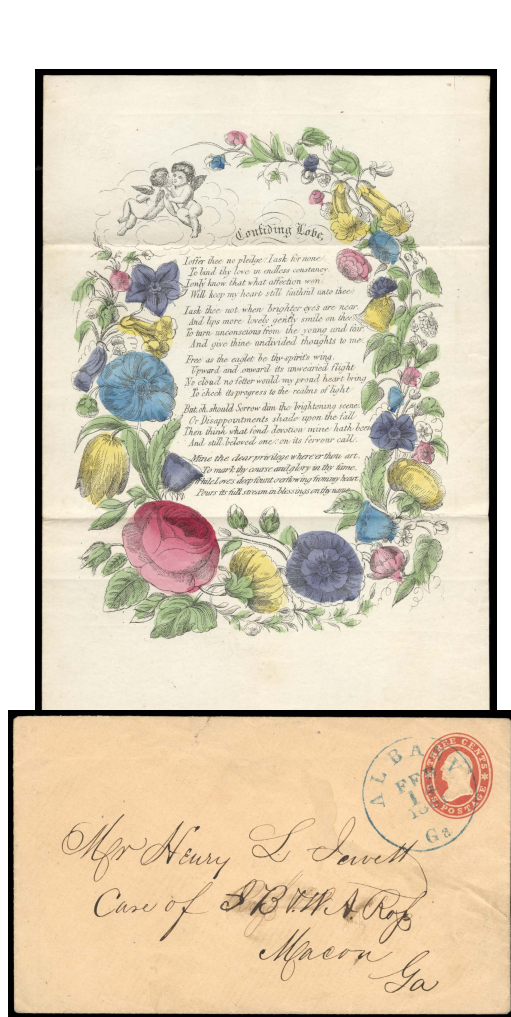 Confiding Love.
I offer thee no pledge I ask for none
To bind thy love in endless constancy
I only know that what affection won
Will keep my heart still faithful unto thee
I ask thee not when brighter eyes are near
And lips more lovely gently smile on thee
To turn unconscious from the young and fair
And give thine undivided thoughts to me
Free as the eaglet be thy spirit's wing
Upward and onward its unwearied flight
No cloud no fetter would my proud heart bring
To check its progress to the realms of light
But, oh, should Sorrow dim the brightening scene
Or Disappointments shade upon thee fall
Then think what fond devotion mine hath been
And still beloved one on its fervour call
Mine the dear privilege where'er thou art
To mark thy course and glory in thy fame
While Love's deep fount overflowing from my heart
Pours its full stream in blessings on thy name
THREE CENTS
U.S. POSTAGE
ALBANY
FEB
Ga
Mr Henry L Jewett
Care of J B & W. A. Ross
Macon
Ga